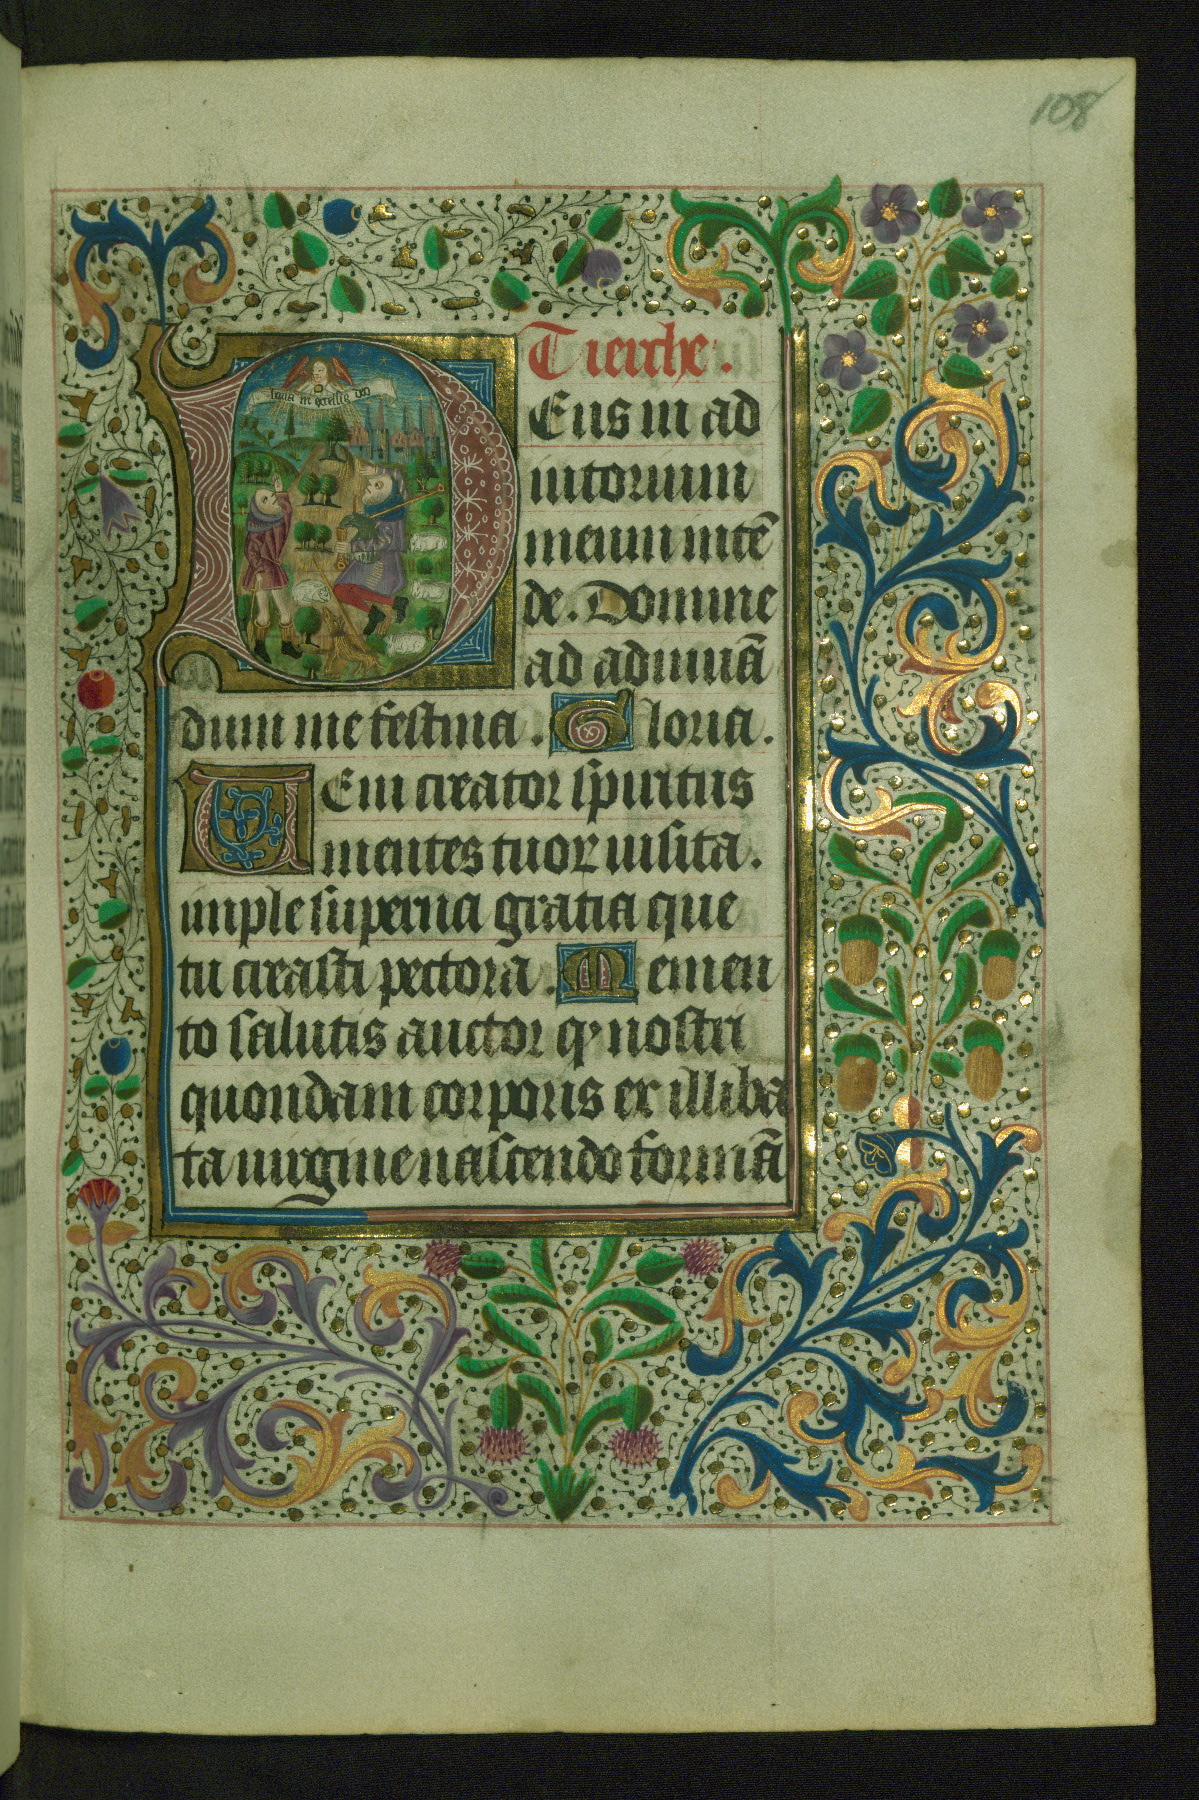 108
gloria in excelsis deo
Tierche.
Eus in ad
iutorium
meum intē
de. Domine
ad adiuuā
dum me festina. Gloria.
Veni creator spiritus
mentes tuoꝝ uisita.
imple superna gratia que
tu creasti pectora. Memen
to salutis auctor qꝭ nostri
quondam corporis ex illiba
ta uirgine nascendo formā